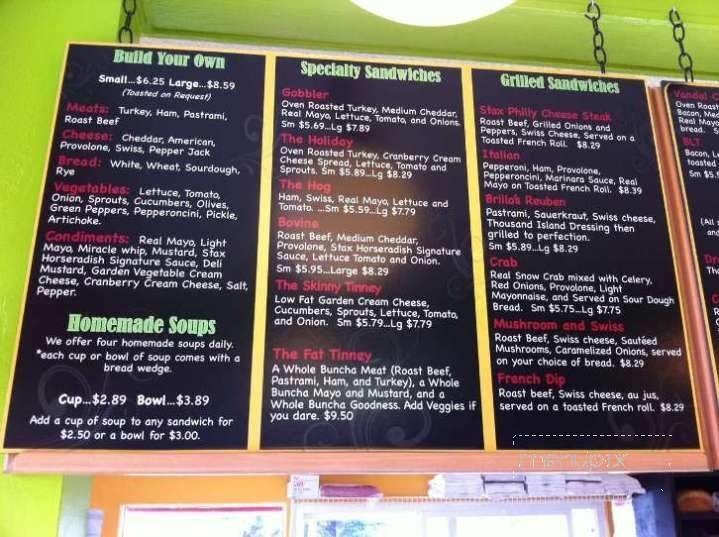 Build Your Own
Small...$6.25 Large...$8.59
(Toasted on Request)
Meats: Turkey, Ham, Pastrami,
Roast Beef
Cheese: Cheddar, American,
Provolone, Swiss, Pepper Jack
Bread: White, Wheat, Sourdough,
Rye
Vegetables: Lettuce, Tomato,
Onion, Sprouts, Cucumbers, Olives,
Green Peppers, Pepperoncini, Pickle,
Artichoke.
Condiments: Real Mayo, Light
Mayo, Miracle whip, Mustard, Stax
Horseradish Signature Sauce, Deli
Mustard, Garden Vegetable Cream
Cheese, Cranberry Cream Cheese, Salt,
Pepper.
Homemade Soups
We offer four homemade soups daily.
*each cup or bowl of soup comes with a
bread wedge.
Cup...$2.89 Bowl...$3.89
Add a cup of soup to any sandwich for
$2.50 or a bowl for $3.00.
Specialty Sandwiches
Gobbler
Oven Roasted Turkey, Medium Cheddar,
Real Mayo, Lettuce, Tomato, and Onions.
Sm $5.69...Lg $7.89
The Holiday
Oven Roasted Turkey, Cranberry Cream
Cheese Spread, Lettuce, Tomato and
Sprouts. Sm $5.89...Lg $8.29
The Hog
Ham, Swiss, Real Mayo, Lettuce and
Tomato. ...Sm $5.59...Lg $7.79
Bovine
Roast Beef, Medium Cheddar,
Provolone, Stax Horseradish Signature
Sauce, Lettuce Tomato and Onion.
Sm $5.95...Large $8.29
The Skinny Tinney
Low Fat Garden Cream Cheese,
Cucumbers, Sprouts, Lettuce, Tomato,
and Onion. Sm $5.79...Lg $7.79
The Fat Tinney
A Whole Buncha Meat (Roast Beef,
Pastrami, Ham, and Turkey), a Whole
Buncha Mayo and Mustard, and a
Whole Buncha Goodness. Add Veggies if
you dare. $9.50
Grilled Sandwiches
Stax Philly Cheese Steak
Roast Beef, Grilled Onions and
Peppers, Swiss Cheese, Served on a
Toasted French Roll. $8.29
Italian
Pepperoni, Ham, Provolone,
Pepperoncini, Marinara Sauce, Real
Mayo on Toasted French Roll. $8.39
Brilla's Reuben
Pastrami, Sauerkraut, Swiss cheese,
Thousand Island Dressing then
grilled to perfection.
Sm $5.89...Lg $8.29
Crab
Real Snow Crab mixed with Celery,
Red Onions, Provolone, Light
Mayonnaise, and Served on Sour Dough
Bread. Sm $5.75...Lg $7.75
Mushroom and Swiss
Roast Beef, Swiss cheese, Sautéed
Mushrooms, Caramelized Onions, served
on your choice of bread. $8.29
French Dip
Roast beef, Swiss cheese, au jus,
served on a toasted French roll. $8.29
Vandal
Oven Roast
Bacon, Med
Real Mayo
bread.
BLT
Bacon,
toasted
Sm $5.
(All
and
menupix